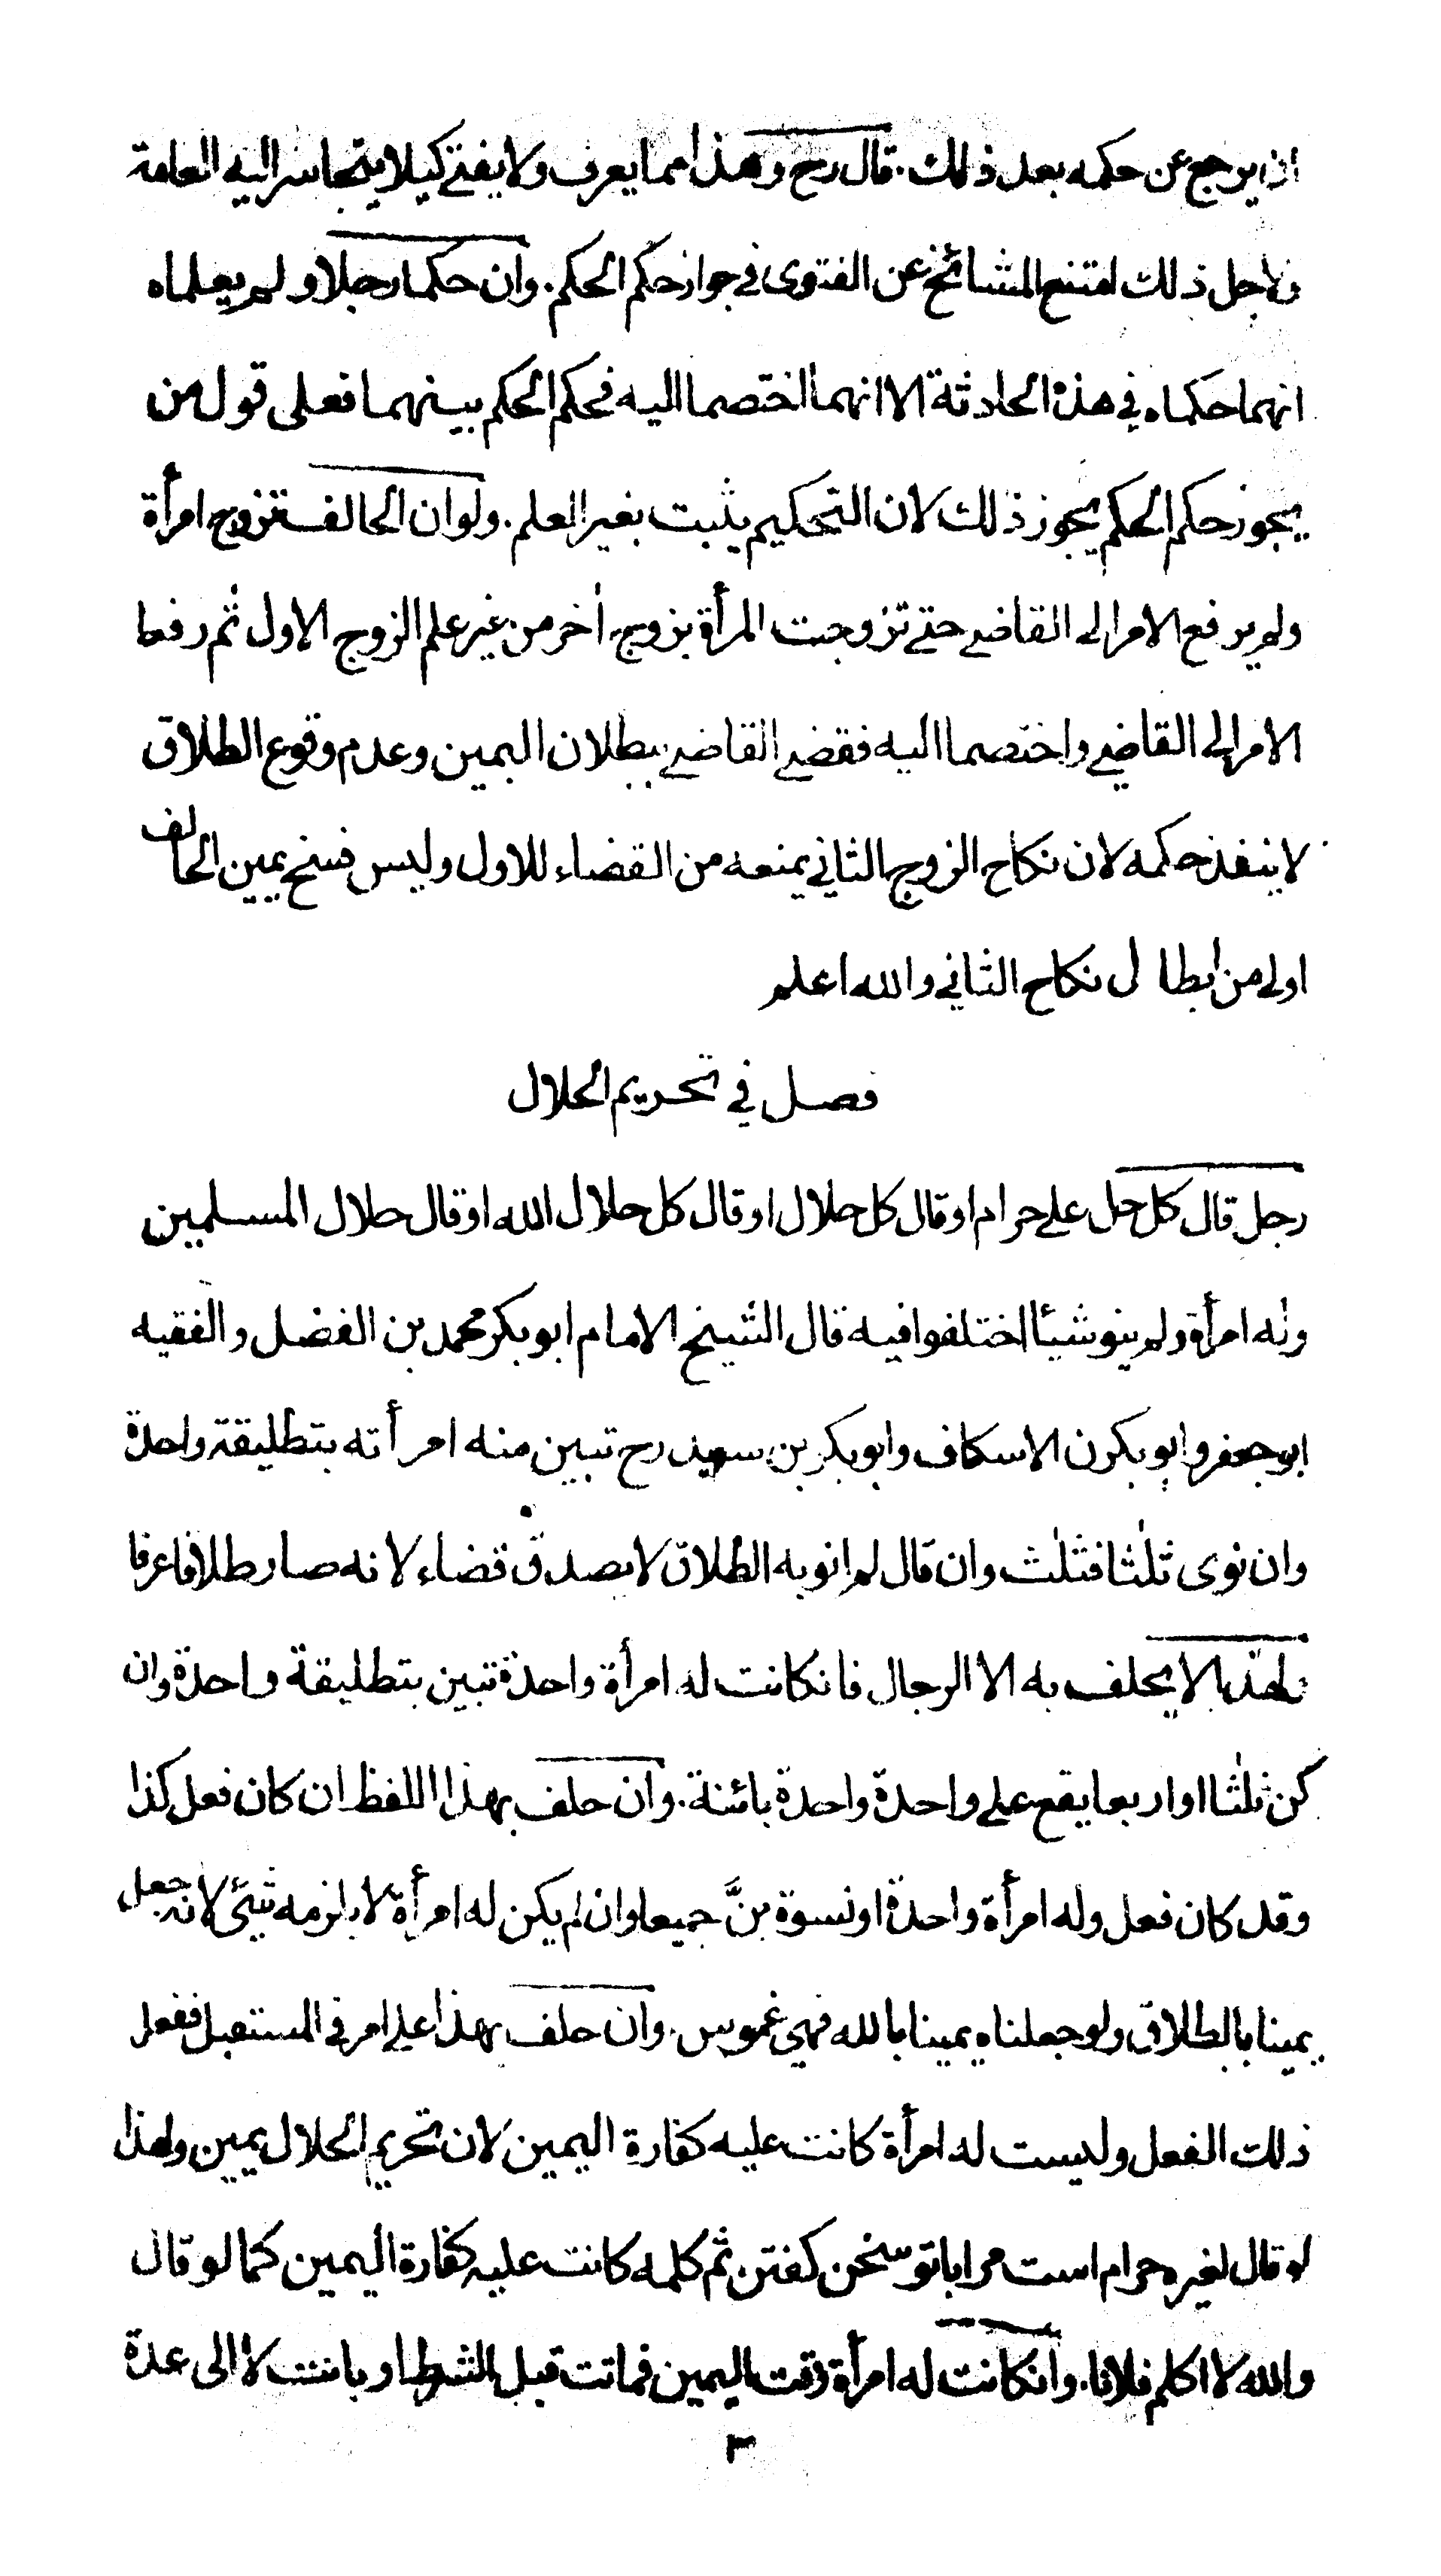 ان يرجع عن حكمه بعد ذلك. قال رح وهذا مما يعرف ولا يفتے كيلا يتجاسر اليه العامة
ولاجل ذلك امتنع المشائخ عن الفتوى في جواز حكم الحكم. وان حكما رجلا ولم يعلماه
انهما حكماه في هذه الحادثة الا انهما اختصما اليه فحكم الحكم بينهما فعلى قول من
يجوز حكم الحكم يجوز ذلك لان التحكيم يثبت بغير العلم. ولو ان الحالف تزوج امرأة
ولم يرفع الامر الى القاضے حتے تزوجت المرأة بزوج اخر من غير علم الزوج الاول ثم رفعا
الامر الى القاضے واختصما اليه فقضے القاضے ببطلان اليمين وعدم وقوع الطلاق
لا ينفذ حكمه لان نكاح الزوج الثاني يمنعه من القضاء للاول وليس فسخ يمين الحالف
اولى من ابطال نكاح الثاني والله اعلم
فصل في تحريم الحلال
رجل قال كل حل علے حرام او قال كل حلال او قال كل حلال الله او قال حلال المسلمين
وله امرأة ولم ينو شيئا اختلفوا فيه قال الشيخ الامام ابو بكر محمد بن الفضل والفقيه
ابو جعفر وابو بكرن الاسكاف وابو بكر بن سعيد رح تبين منه امرأته بتطليقة واحدة
وان نوى ثلثا فثلث وان قال لم انو به الطلاق لا يصدق قضاء لانه صار طلاقا عرفا
ولهذا لا يحلف به الا الرجال فانكانت له امرأة واحدة تبين بتطليقة واحدة وان
كن ثلثا او اربعا يقع علے واحدة واحدة بائنة. وان حلف بهذا اللفظ ان كان فعل كذا
وقد كان فعل وله امرأة واحدة او نسوة بنَّ جميعا وان لم يكن له امرأة لا يلزمه شئ لانه جعل
يمينا بالطلاق ولو جعلناه يمينا بالله فهي غموس. وان حلف بهذا علے امر في المستقبل ففعل
ذلك الفعل وليست له امرأة كانت عليه كفارة اليمين لان تحريم الحلال يمين ولهذا
لو قال لغيره حرام است مرا باتو سخن كفتن ثم كلمه كانت عليه كفارة اليمين كما لو قال
والله لا اكلم فلانا. وانكانت له امرأة وقت اليمين فماتت قبل الشرط او بانت لا الى عدة
٣